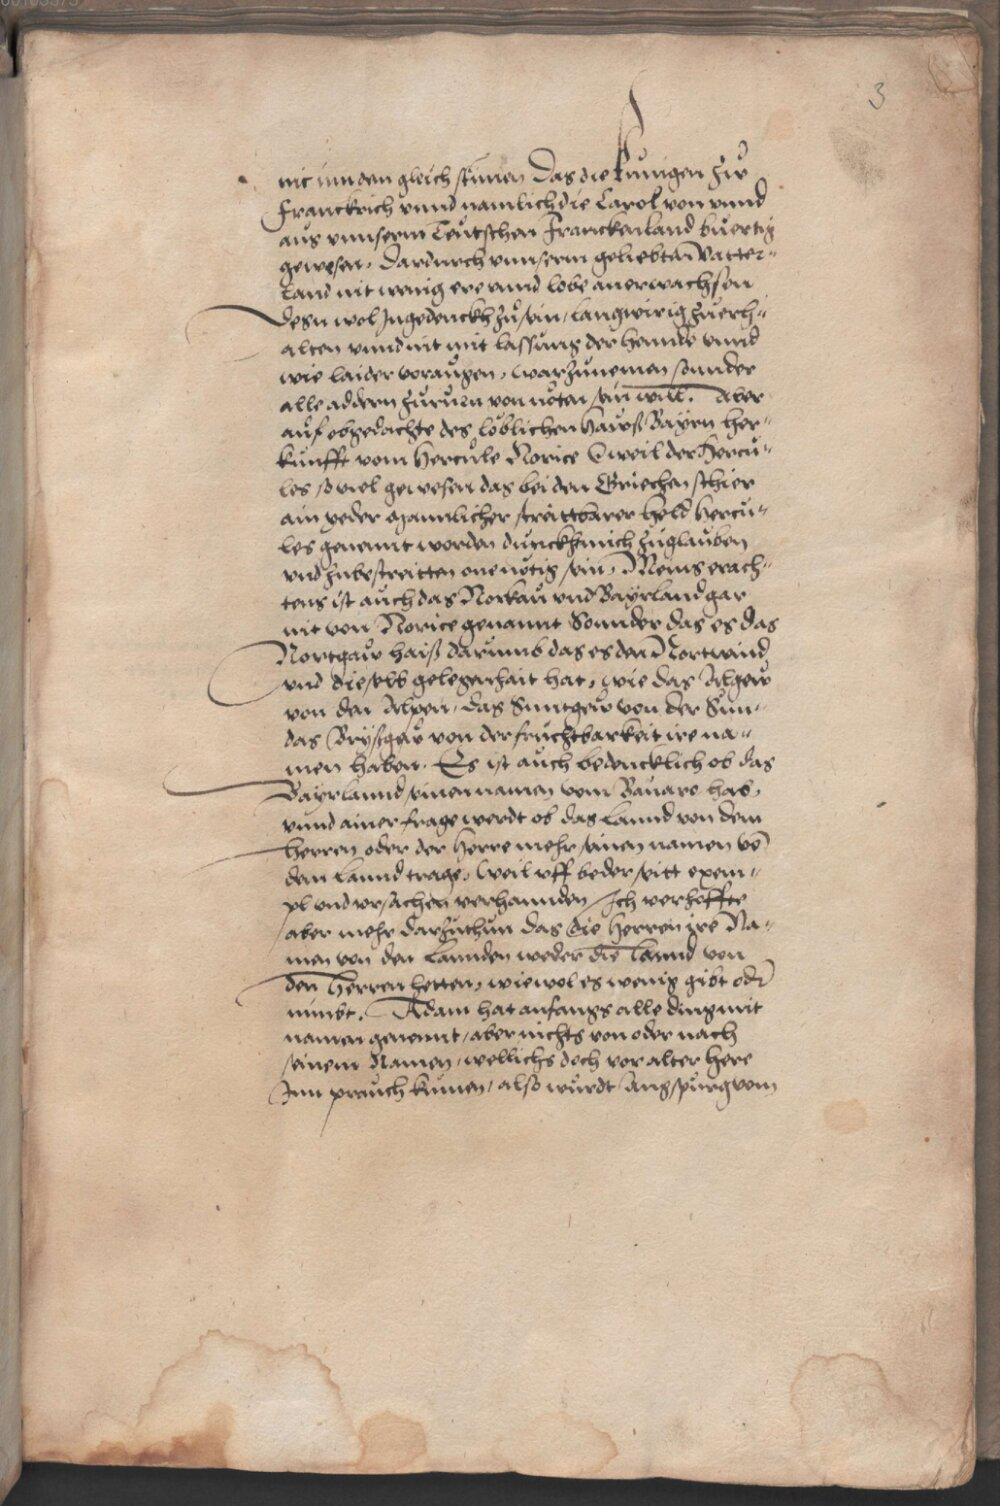 3
nit inn den gleich stimen Das die kunigen Zuͦ
Franckrich vnnd namlich die Carol von vnnd
aus vnnserm Teutschen Franckenland buertig
gewesen, Dardurch vnnserm geliebtan Vatter-
land nit wenig ere vnnd lobe anerwachsen
Des wol Ingedenckh Zuͦ sein, langwirig Zuerh-
alten vnnd nit mit lassung der hennde vnnd
wie laider voraugen, warzunemen sonnder
alle addern Zuͦ von nöten sein will. Aber
auf obgedachte des löblichen Hauß Bayrn her-
kunfft vom Hercule Norice Dweil der Hercu-
les so viel gewesen das bei den Griechen schier
ain yeder mannlicher streittbarer held Hercu-
les genennt worden dunckht mich Zuglauben
vnd Zubestreitten one nötig sein, Meins erach-
tens ist auch das Norkau vnd Bayrland gar
nit von Norice genannt Sonnder das es das
Nortgaw haiß darumb das es den Nortwind
vnd dieselb gelegenhait hat, wie das Algew
von den Alpen, das Suntgew von der Sun-
das Bryßgew von der fruchtbarkeit ire na-
men haben. Es ist auch bedencklich ob das
Bayrlannd seinen namen vom Bauaro hab,
vnnd ainer frage werdt ob das lannd von dem
Herren oder der Herre mehr seinen namen vo͂
dem lannd trage, Weil vff beder seitt exem-
pl vnd vrsachen verhannden Ich verhoffte
aber mehr darzuthun das die Herren ire Na-
men von den Lannden weder die lannd von
den Herren hetten, wiewol es wenig gibt oder
nimbt. Adam hat anfangs alle ding mit
namen genennt, aber nichts von oder nach
seinem Namen, wellichs doch vor alter here
Inn prauch kumen, also wurdt Augspurg vom